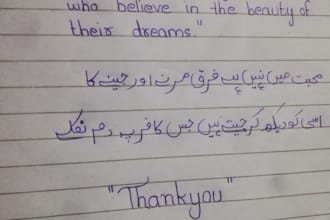 who believe in the beauty of
their dreams."
محبت میں نہیں ہے فرق مرنے اور جینے کا
اسی کو دیکھ کر جیتے ہیں جس کافر پہ دم نکلے
"Thankyou"